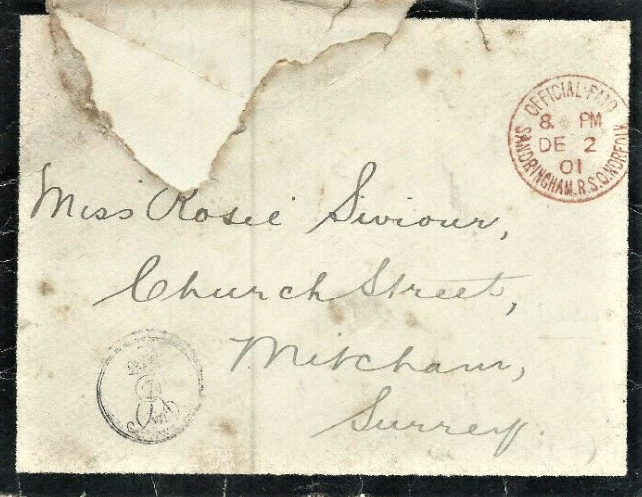 OFFICIAL PAID
8. PM
DE 2
01
SANDRINGHAM.R.S.O.NORFOLK
Miss Rosie Siviour,
Church Street,
Mitcham,
Surrey.